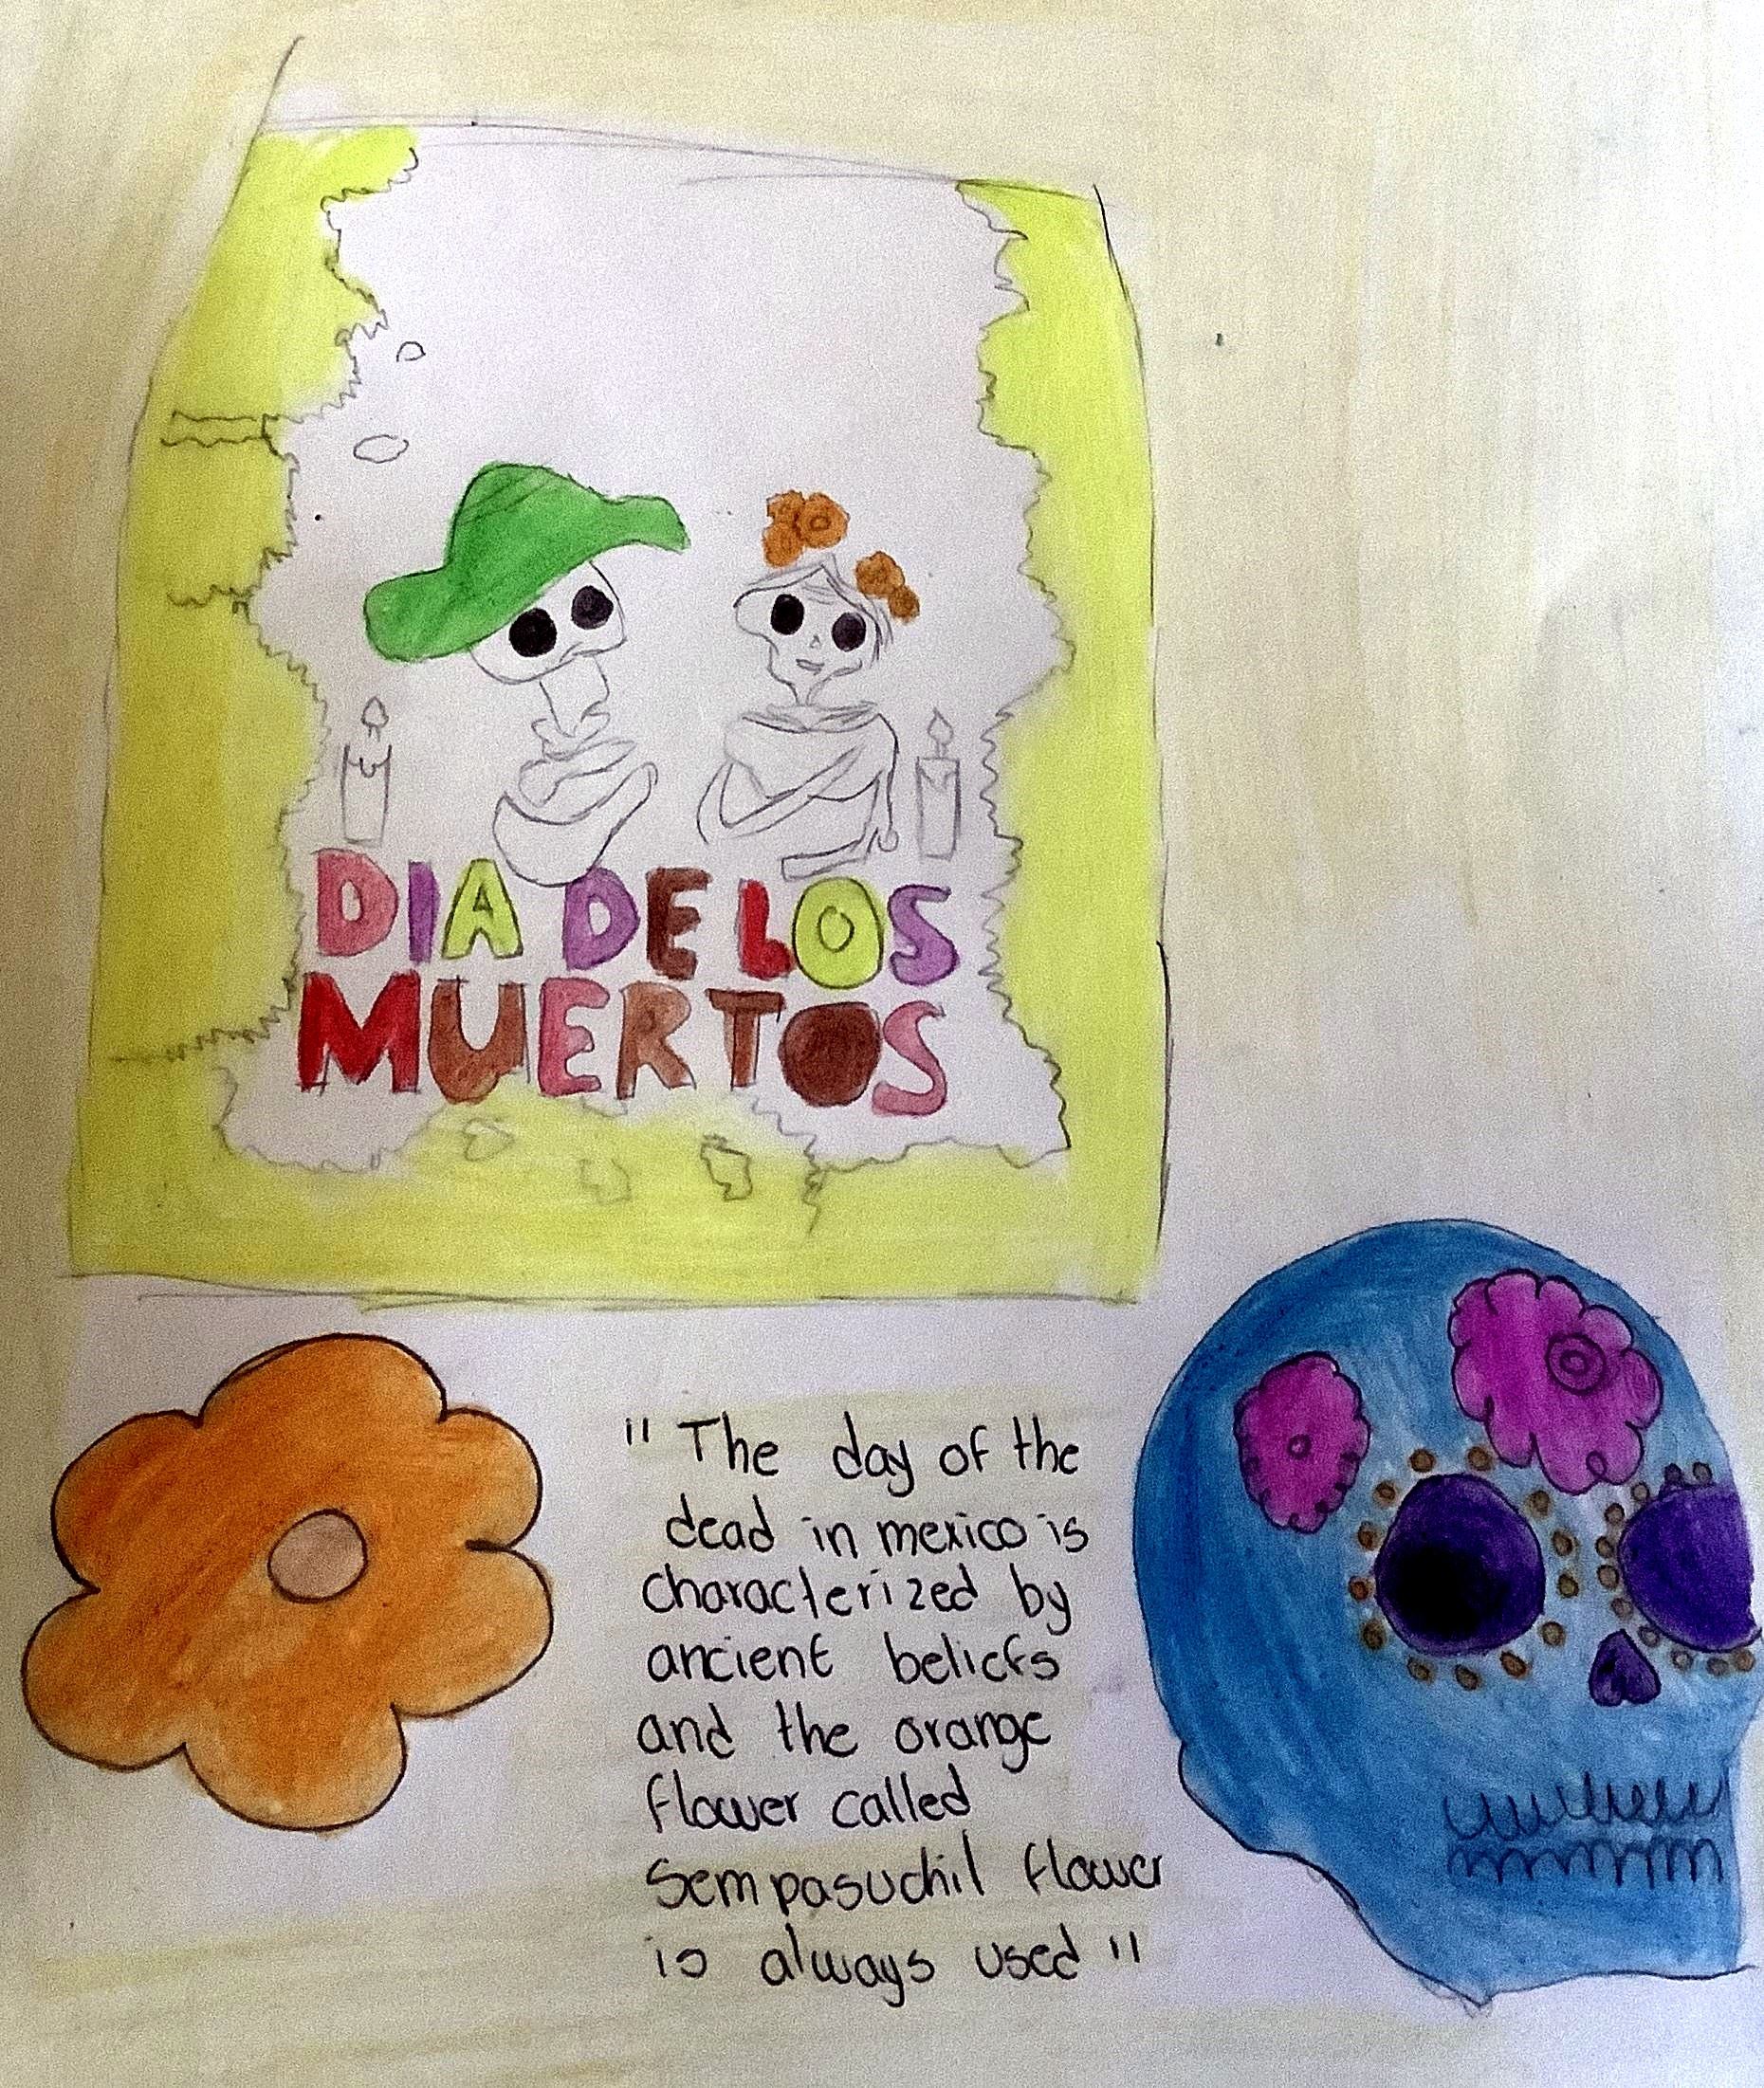 DIA DE LOS
MUERTOS
" The day of the
dead in mexico is
characterized by
ancient beliefs
and the orange
flower called
Sempasuchil flower
is always used "